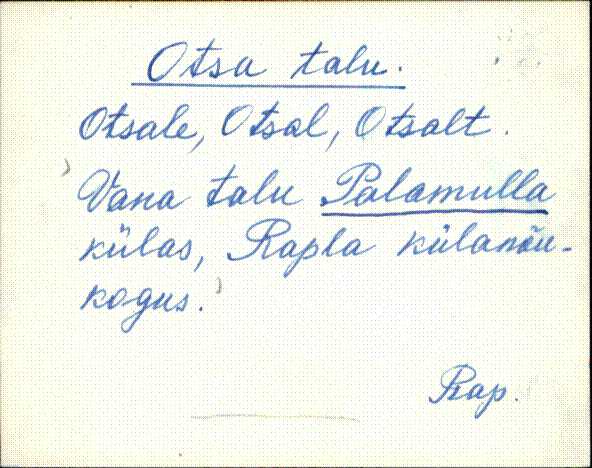 Otsa talu.
Otsale, Otsal, Otsalt.
Vana talu Palamulla
külas, Rapla külanõu-
kogus.
Rap.